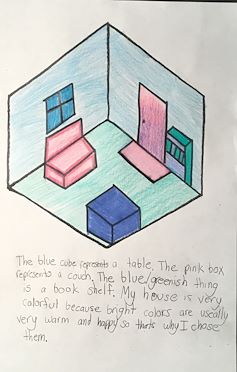 The blue cube represents a table. The pink box
represents a couch. The blue/greenish thing
is a book shelf. My house is very
colorful because bright colors are usually
very warm and happy so thats why I chose
them.